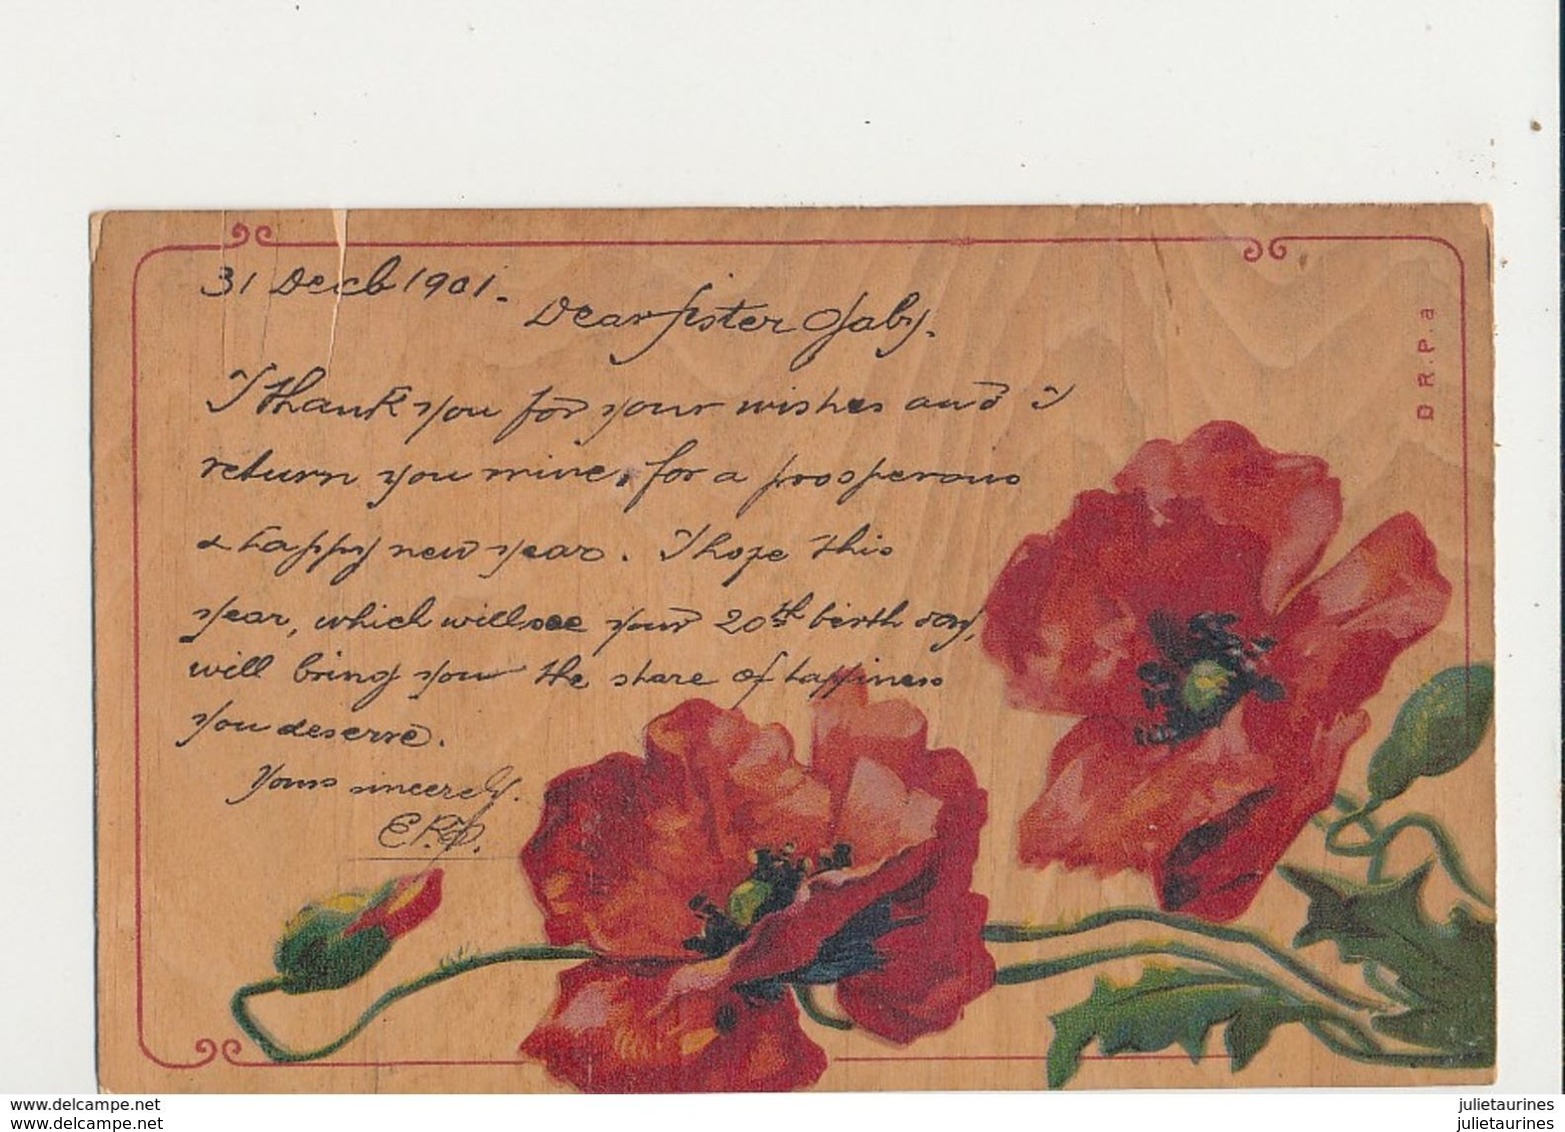 31 Decb 1901.
Dear sister Gaby.
I thank you for your wishes and I
return you mine, for a prosperous
& happy new year. I hope this
year, which will see your 20th birth day,
will bring you the share of happiness
you deserve.
Yours sincerely.
D.R.P.a
julietaurines.com
julietaurines.com
julietaurines
julietaurines